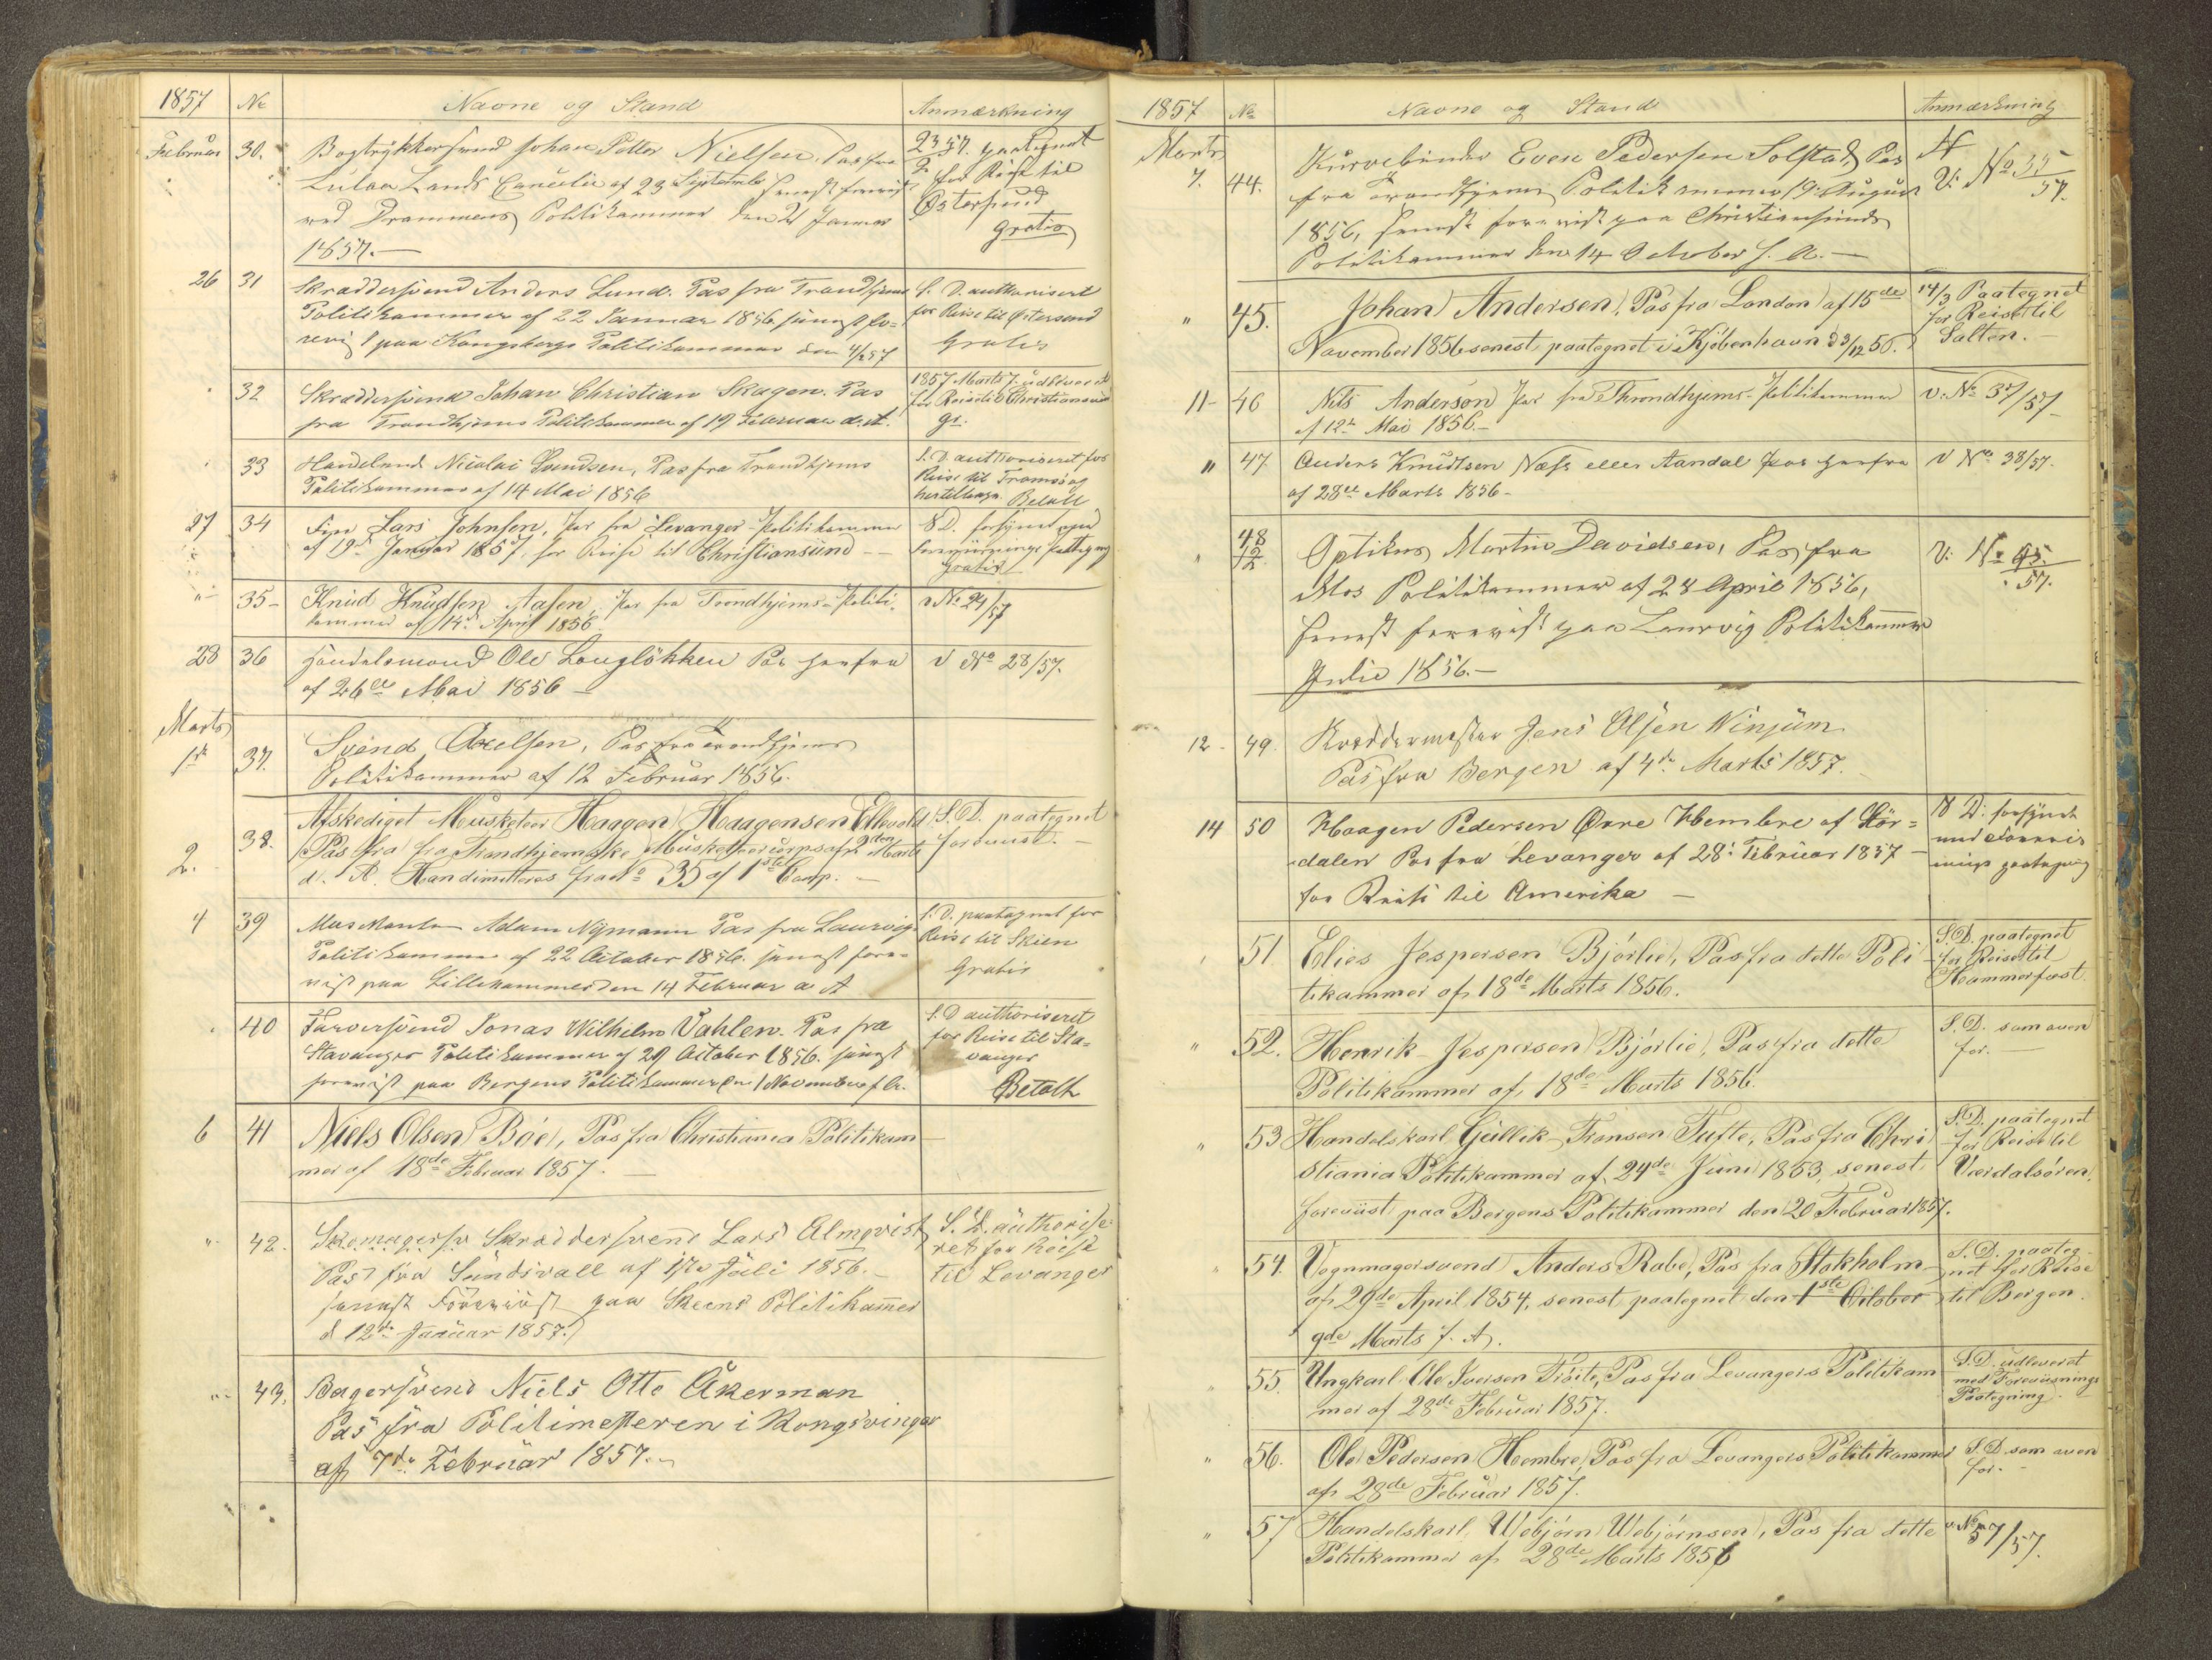 1857 No Navne og Stand Anmærkning
Februar 30. Bogtrykkersvend Johan Petter Nielsen, Pas fra
Luleaa Lands Cancelie af 23 September senest forevist
ved Drammens Politikammer den 21 Januar
1857.—
23 57. paategnet
2
for Reise til
Østersund
gratis
26 31 Skræddersvend Anders Lund. Pas fra Trondhjems
Politikammer af 22 Januar 1856 senest fo-
revist paa Kongsbergs Politikammer den 4/2 57
S. D. authoriseret
for Reise til Østersund
Gratis
32 Skræddersvend Johan Christian Skagen. Pas
fra Trondhjems Politikammer af 19 Februar d. A.
1857 Marts 7. udleveret
for Reise til Christiansund
gr.
33 Handelsmd Nicolai Svendsen, Pas fra Trondhjems
Politikammer af 14 Mai 1856
S. D. authoriseret for
Reise til Tromsø og
hertilbage. Betalt
27 34 Fin Lars Johnsen, Pas fra Levanger-Politikammer
af 19de Januar 1857, for Reise til Christiansund —
S D. forsynet med
Forevisnings Paategning
Gratis
"– 35– Knud Knudsen Aasen, Pas fra Trondhjems-Politi-
kammer af 14de April 1856
v No 24/57
28 36 Handelsmand Ole Langløkken Pas herfra
af 26de Mai 1856 —
v No 28/57.
Marts
1ste 37. Svend Axelsen, Pas fra Trondhjems
Politikammer af 12 Februar 1856.
2. 38. Afskediget Musketeer Haagen Haagensen Ellevold
Pas fra fra Trondhjemske Musketeercorps af 2den Marts
d. A. Handimitteres fra No 35 af 1ste Comp. —
S. D. paategnet
forevist. —
4 39 Adam Nymann Pas fra Laurvigs
Politikammer af 22 October 1856. senest fore-
vist paa Lillehammer den 14 Februar a A
S. D. paategnet for
Reise til Skien
Gratis
40 Farversvend Jonas Wilhelm Vahlen. Pas fra
Stavanger Politikammer af 29 October 1856. senest
forevist paa Bergens Politikammer den 1 November f. A.
S. D authoriseret
for Reise til Sta-
vanger
Betalt
6 41 Niels Olsen Böe, Pas fra Christiania Politikam
mer af 18de Februar 1857. —
"– 42. Skomagersv Skræddersvend Lars Almqvist
Pas fra Sundsvall af 17de Juli 1856.—
senest Forevist paa Skeens Politikammer
d 12te Januar 1857.
S. D. authorise-
ret for Reise
til Levanger
"– 43, Bagersvend Niels Otto Åkerman
Pas fra Politimesteren i Kongsvinger
af 7de Februar 1857.
1857 No Navne og Stand Anmærkning
Marts
7. 44. Kurvebinder Even Pedersen Solstad, Pas
fra Trondhjems Politikammer 19 August
1856, senest forevist paa Christiansunds
Politikammer den 14 October f. A. —
V. No 35
57.
" 45. Johan Andersen, Pas fra London af 15de
November 1856 senest paategnet i Kjöbenhavn d 3/12 56.
14/3 Paategnet
for Reise til
Salten.
11– 46 Nils Anderson Pas fra Throndhjems-Politikammer
af 12te Mai 1856.–
v: No 37/57
" 47 Anders Knudtsen Næss eller Aandal Pas herfra
af 28de Marts 1856–
v No 38/57.
" 48
12. Optikus Martin Davidsen, Pas fra
Mos Politikammer af 28 April 1856,
senest forevist paa Laurvig Politikammer
Julie 1856.—
V. No 45.
57.
12– 49. Kræddermester Jens Olsen Winjum
Pas fra Bergen af 4de Marts 1857.
14 50 Haagen Pedersen Øvre Hembre af Stør=
dalen Pas fra Levanger af 28: Februar 1857 —
for Reise til Amerika —
S D: forsynet
med Forevis
nings paategning
" 51 Elies Jespersen Bjórlie, Pas fra dette Poli
tikammer af 18de Marts 1856.
S. D. paategnet
for Reise til
Hammerfæst.
" 52. Henrik Jespersen Bjórlie, Pas fra dette
Politikammer af 18de Marts 1856.
S. D. som oven
for. —
" 53 Handelskarl Gullik Fransen Tufte, Pas fra Chri
stiania Politikammer af 24de Juni 1853, senest
foreviist paa Bergens Politikammer den 20 Februar 1857.
S. D. paategnet
for Reise til
Værdalsören.
" 54. Vognmagersvend Anders Rabe, Pas fra Stokholm
af 29de April 1854, senest paategnet den 1ste Oktober
9de Marts f. A.
S. D. paateg-
net for Reise
til Bergen.
" 55. Ungkarl Ole Iversen, Pas fra Levangers Politikam
mer af 28de Februar 1857.
S. D. udleveret
med Foreviisnings
Paategning.
" 56. Ole Pedersen Hembre, Pas fra Levangers Politikammer
af 28de Februar 1857.
S. D. som oven
for. —
" 57 Handelskarl Webjørn Webjørnsen, Pas fra dette
Politikammer af 28de Marts 1856
v. No 57/57.